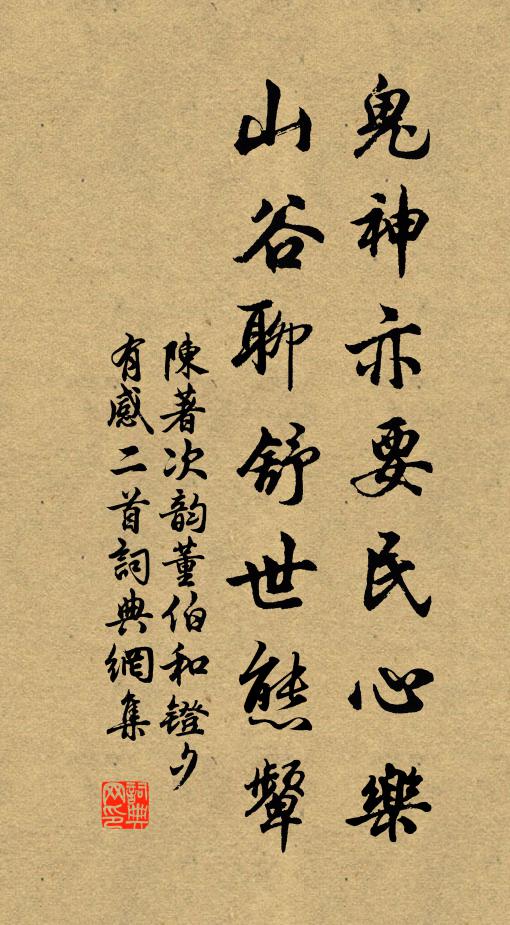 鬼神亦要民心樂
山谷聊舒世態顰
陳著次韵董伯和鐙夕
有感二首詞典網集
詞典网印